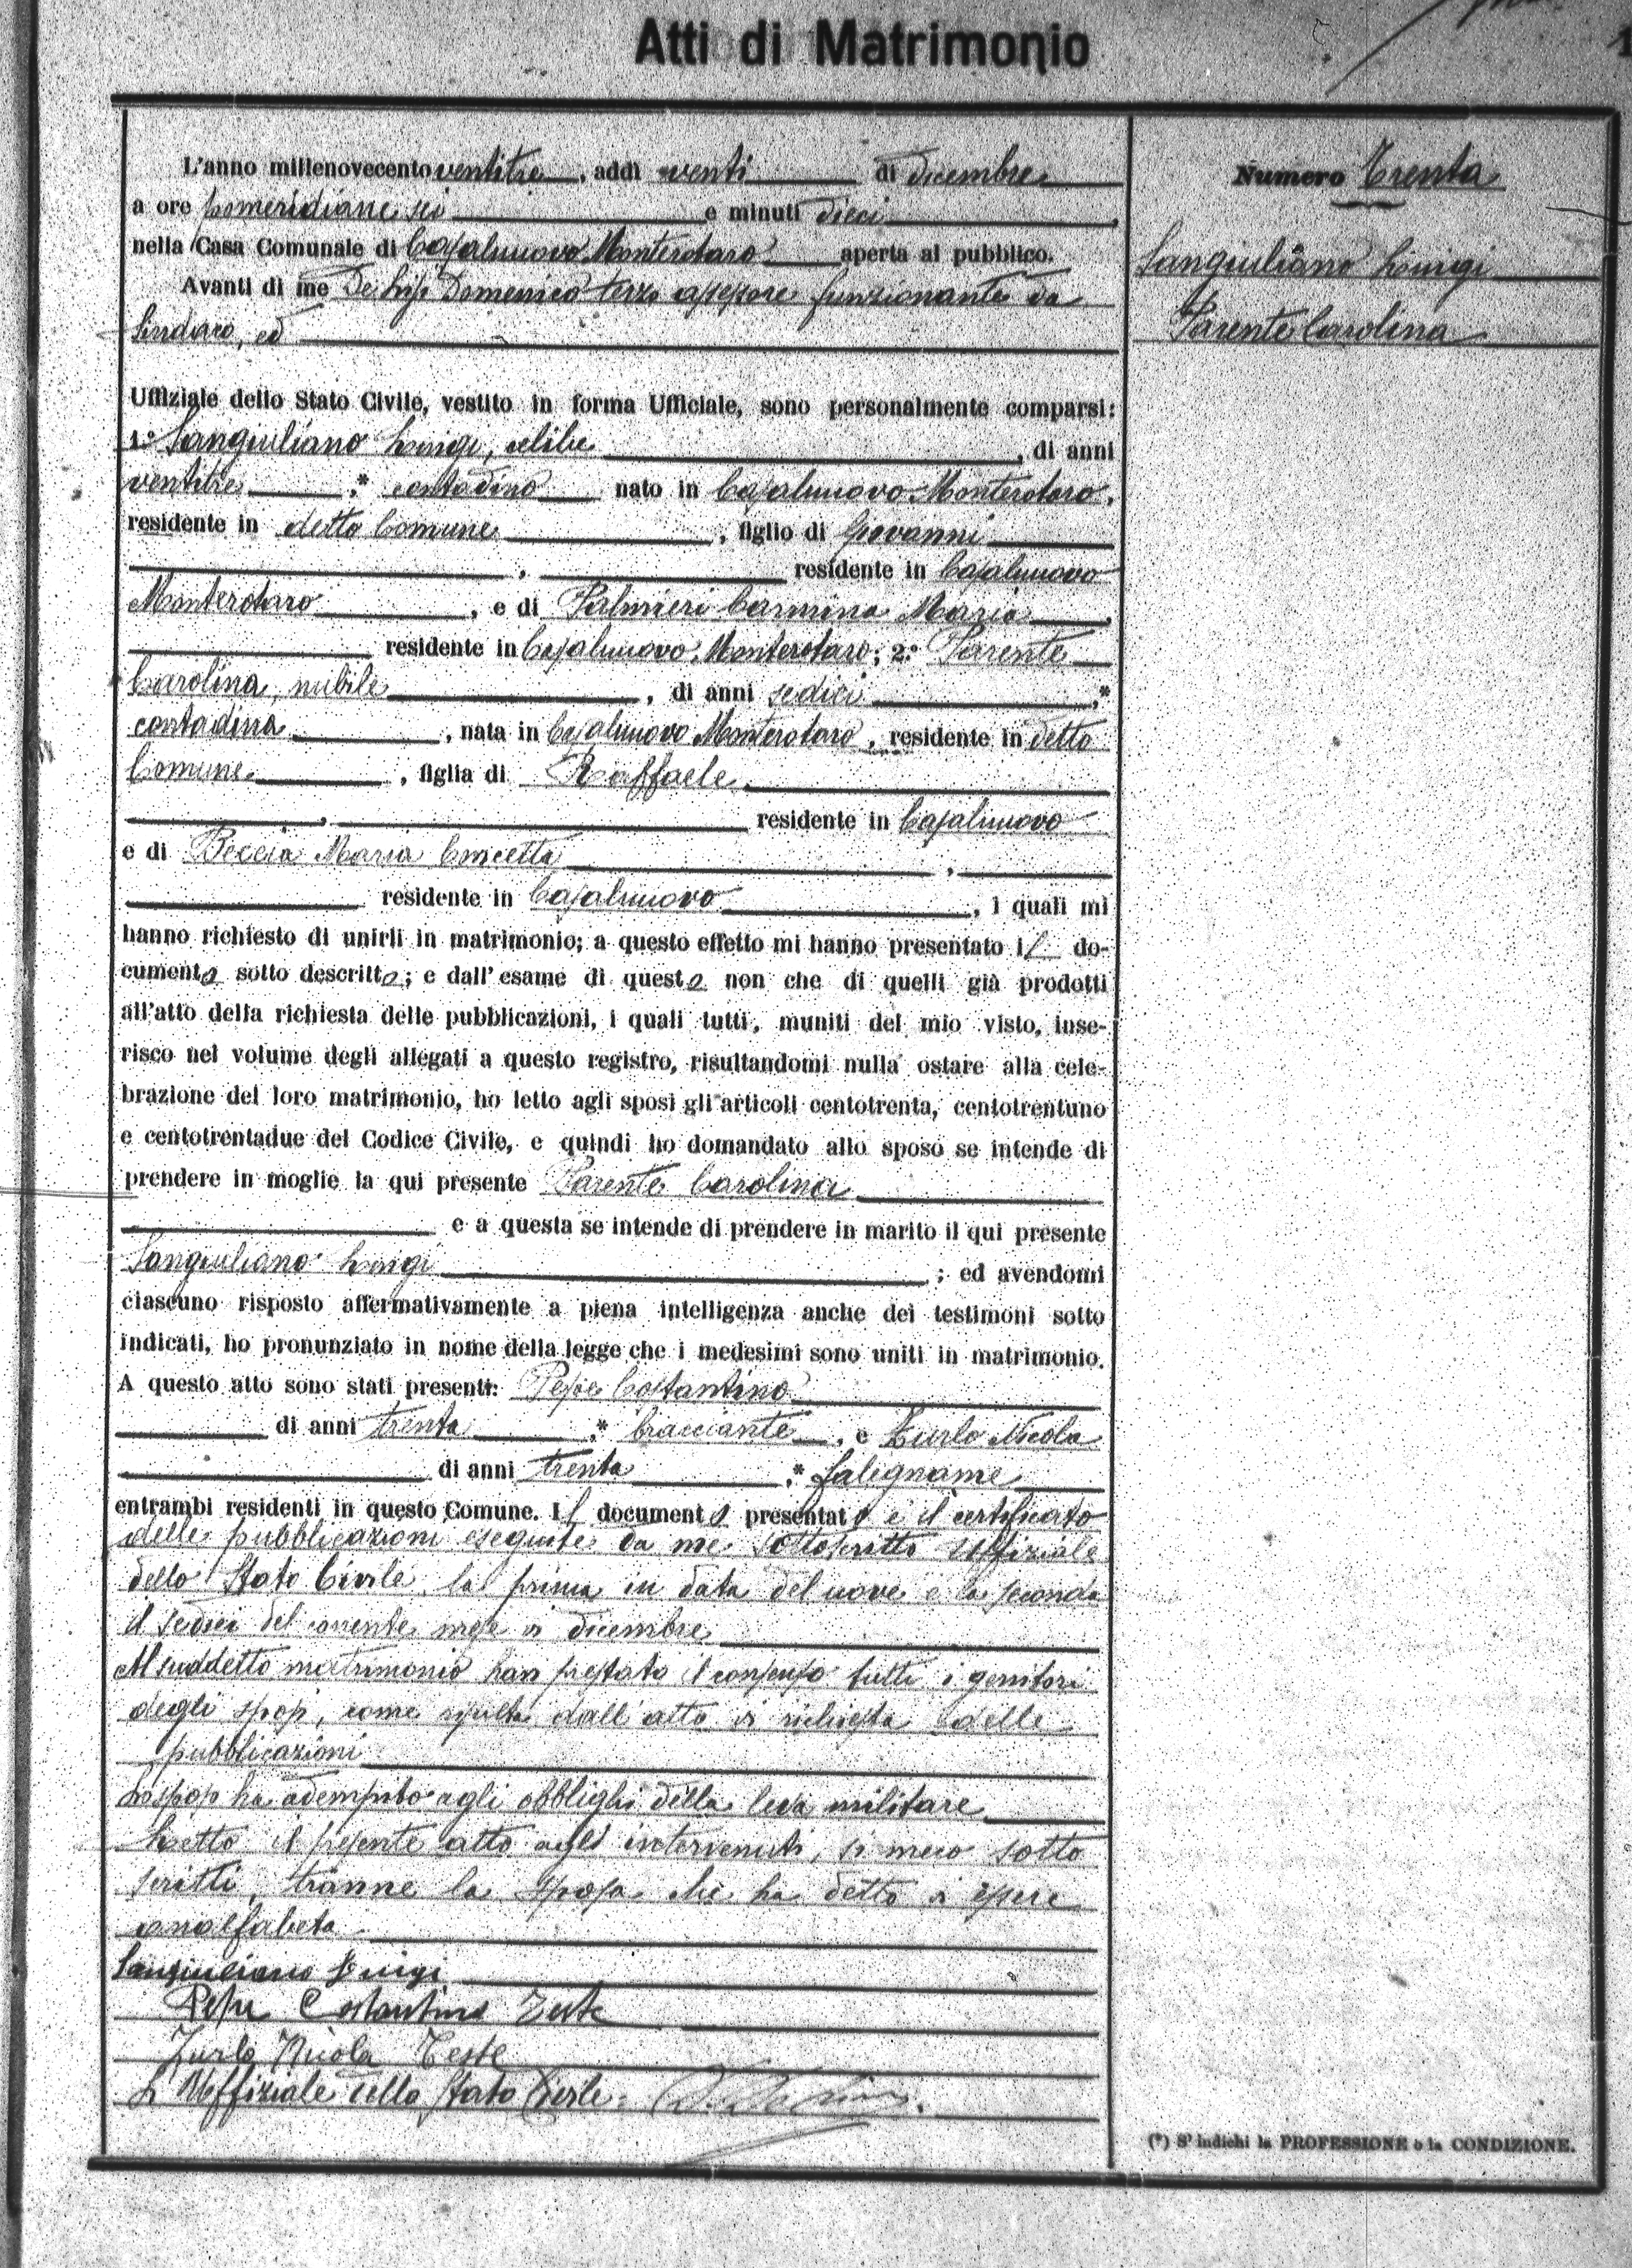 Atti di Matrimonio
Numero Trenta
Sangiuliano Luigi
Parente Carolina
L'anno millenovecento ventitre, addì venti di dicembre
a ore pomeridiane sei e minuti dieci,
nella Casa Comunale di Casalnuovo Monterotaro aperta al pubblico.
Avanti di me De Lisi Domenico terzo assessore funzionante da
Sindaco, ed
Uffiziale dello Stato Civile, vestito in forma Ufficiale, sono personalmente comparsi:
1.° Sangiuliano Luigi, celibe, di anni
ventitre,* contadino nato in Casalnuovo Monterotaro,
residente in detto Comune, figlio di Giovanni
, residente in Casalnuovo
Monterotaro, e di Palmieri Carmina Maria,
residente in Casalnuovo Monterotaro; 2.° Parente
Carolina, nubile, di anni sedici,*
contadina, nata in Casalnuovo Monterotaro, residente in detto
Comune, figlia di Raffaele
, residente in Casalnuovo
e di Beccia Maria Concetta,
residente in Casalnuovo, i quali mi
hanno richiesto di unirli in matrimonio; a questo effetto mi hanno presentato il do-
cumento sotto descritto; e dall'esame di questo non che di quelli già prodotti
all'atto della richiesta delle pubblicazioni, i quali tutti, muniti del mio visto, inse-
risco nel volume degli allegati a questo registro, risultandomi nulla ostare alla cele-
brazione del loro matrimonio, ho letto agli sposi gli articoli centotrenta, centotrentuno
e centotrentadue del Codice Civile, e quindi ho domandato allo sposo se intende di
prendere in moglie la qui presente Parente Carolina
e a questa se intende di prendere in marito il qui presente
Sangiuliano Luigi; ed avendomi
ciascuno risposto affermativamente a piena intelligenza anche dei testimoni sotto
indicati, ho pronunziato in nome della legge che i medesimi sono uniti in matrimonio.
A questo atto sono stati presenti: Pepe Costantino
di anni trenta,* bracciante, e Zurlo Nicola
di anni trenta,* falegname
entrambi residenti in questo Comune. Il documento presentato è il certificato
delle pubblicazioni eseguite da me sottoscritto Uffiziale
dello Stato Civile la prima in data del nove e la seconda
il sedici del corrente mese di dicembre
Al suddetto matrimonio han prestato il consenso tutti i genitori
degli sposi, come risulta dall'atto di richiesta delle
pubblicazioni
Lo sposo ha adempito agli obblighi della leva militare
Letto il presente atto agli intervenuti, si meco sotto
scritti, tranne la sposa che ha detto di essere
analfabeta.
Sangiuliano Luigi
Pepe Costantino Teste
Zurlo Nicola Teste
L'Uffiziale dello Stato Civile:
(*) S'indichi la PROFESSIONE o la CONDIZIONE.